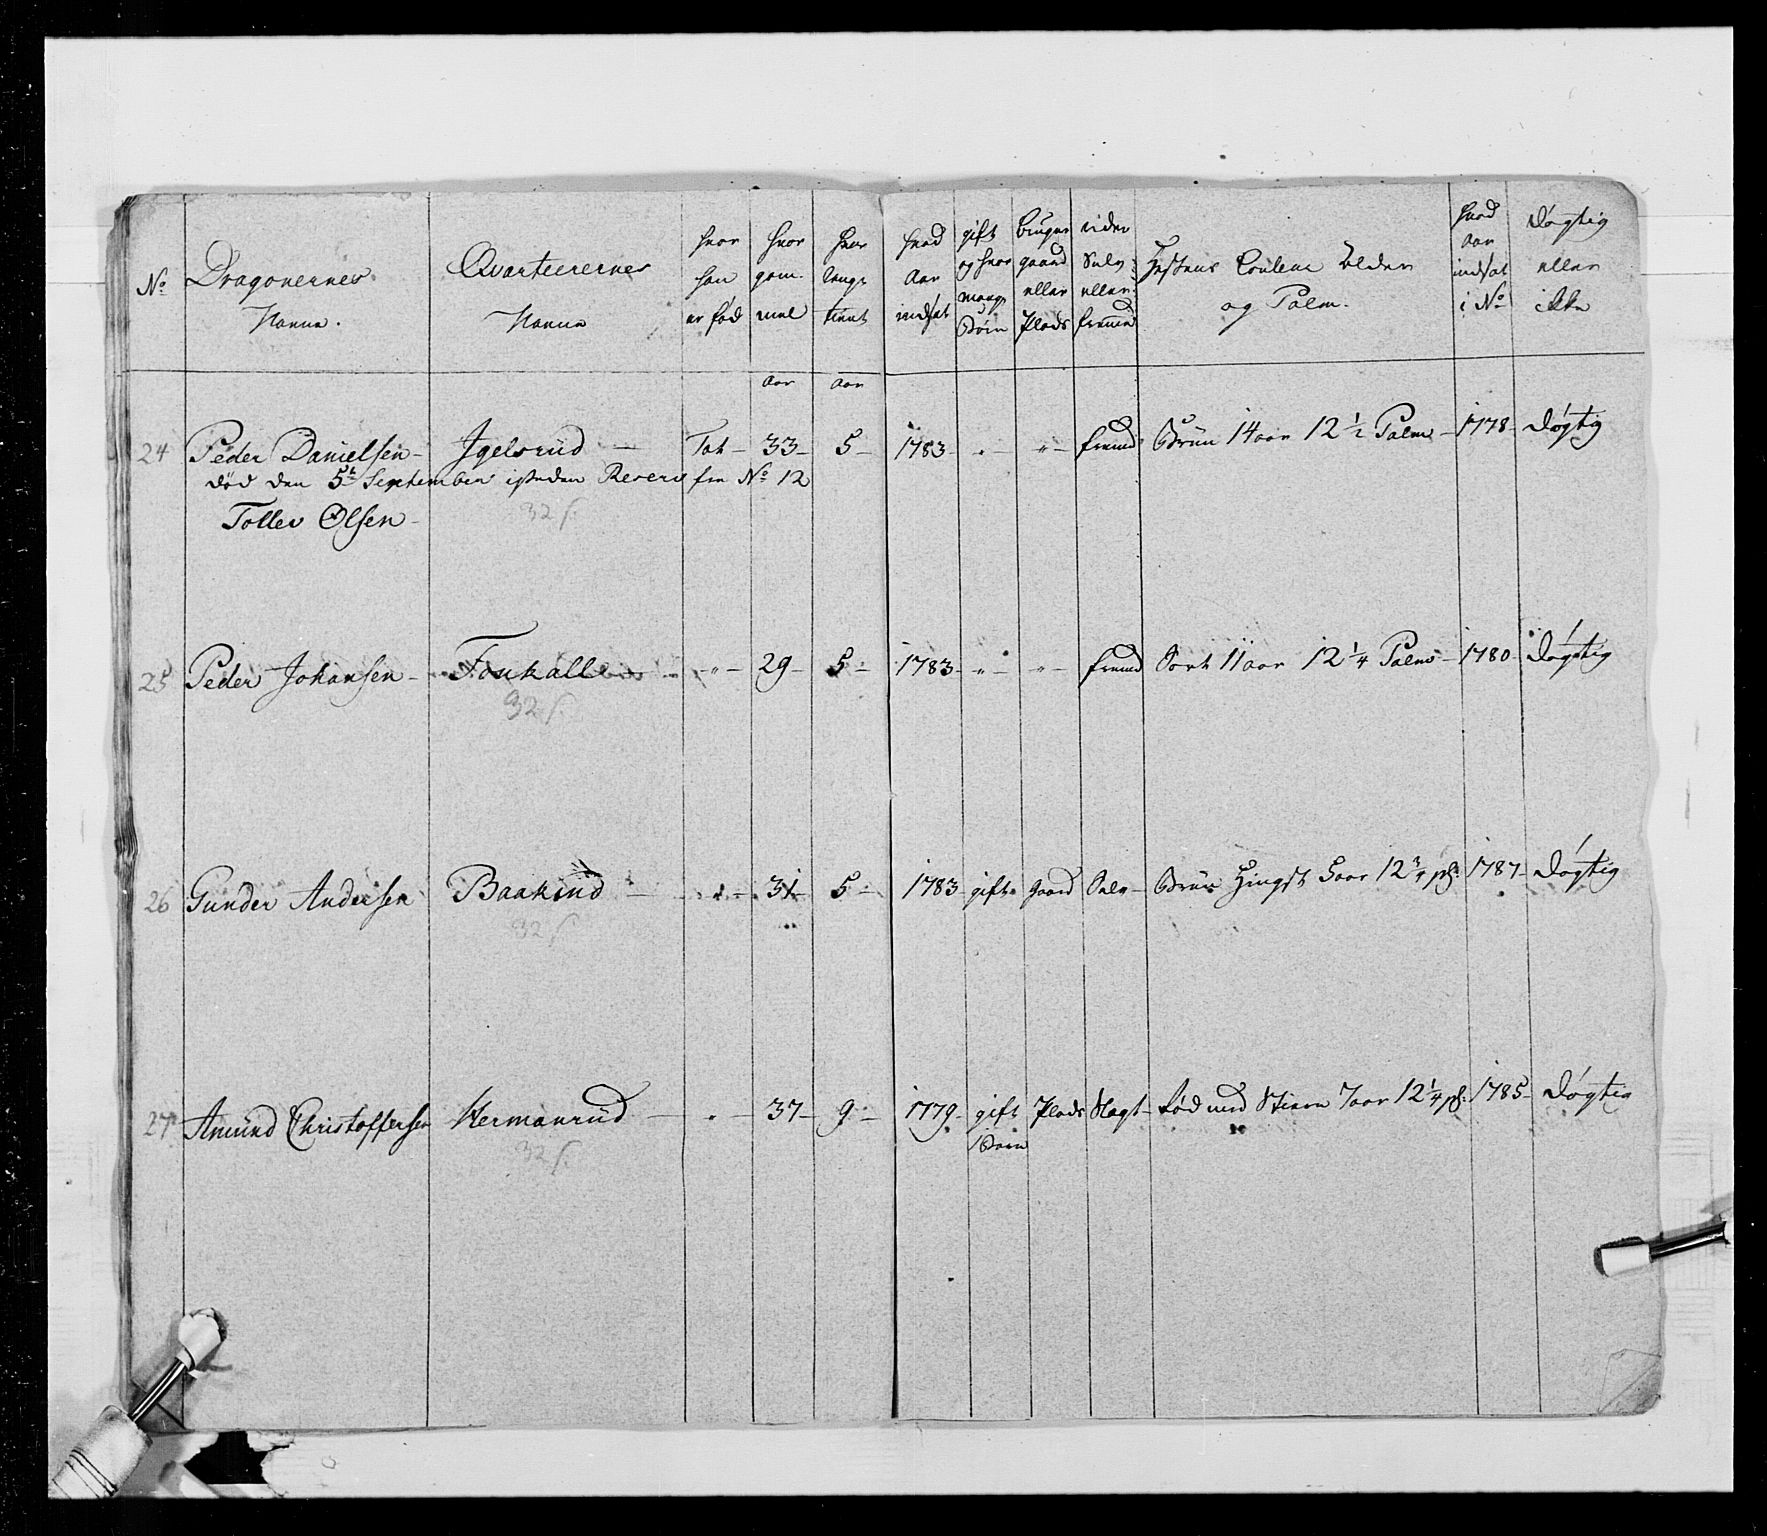 No | Dragonernes Nafne. | Qvarteerernes Nafne | hvor han er fød | hvor gam- mel | hvor lenge tient | hvad Aar indsat | gift og hvor mange Børn | bruger gaard eller Plads | rider Selv eller fremd | Hestens Couleur Alder og Palm. | hvad Aar indsat i No | døgtig eller ikke
aar | aar
24 | Peder Danielsen - | Igelsrud - | Tot - | 33 - | 5 - | 1783 - | " - | " - | fremd | Brun 14 aar 12 1/2 Palm - | 1778 - | døgtig
död den 5t September isteden Reserv fra No 12
Tollev Olsen - | 32 ſ.
25 | Peder Johansen - | | " - | 29 - | 5 - | 1783 - | " - | " - | fremd | Sort 11 aar 12 1/4 Palm - | 1780 - | døgtig
32 ſ.
26 | Gunder Andersen | Baakind - | " - | 31 - | 5 - | 1783 | gift - | Gaard | Selv - | Brun Hingst 5 aar 12 3/4 pl: | 1787 - | døgtig
32 ſ.
27 | Amund Christoffersen | Hermanrud - | " - | 37 - | 9 - | 1779 - | gift | Plads | Vagt - | Rød med Stiern 7 aar 12 1/4 pl: | 1785 - | døgtig
1 Barn
32 ſ.